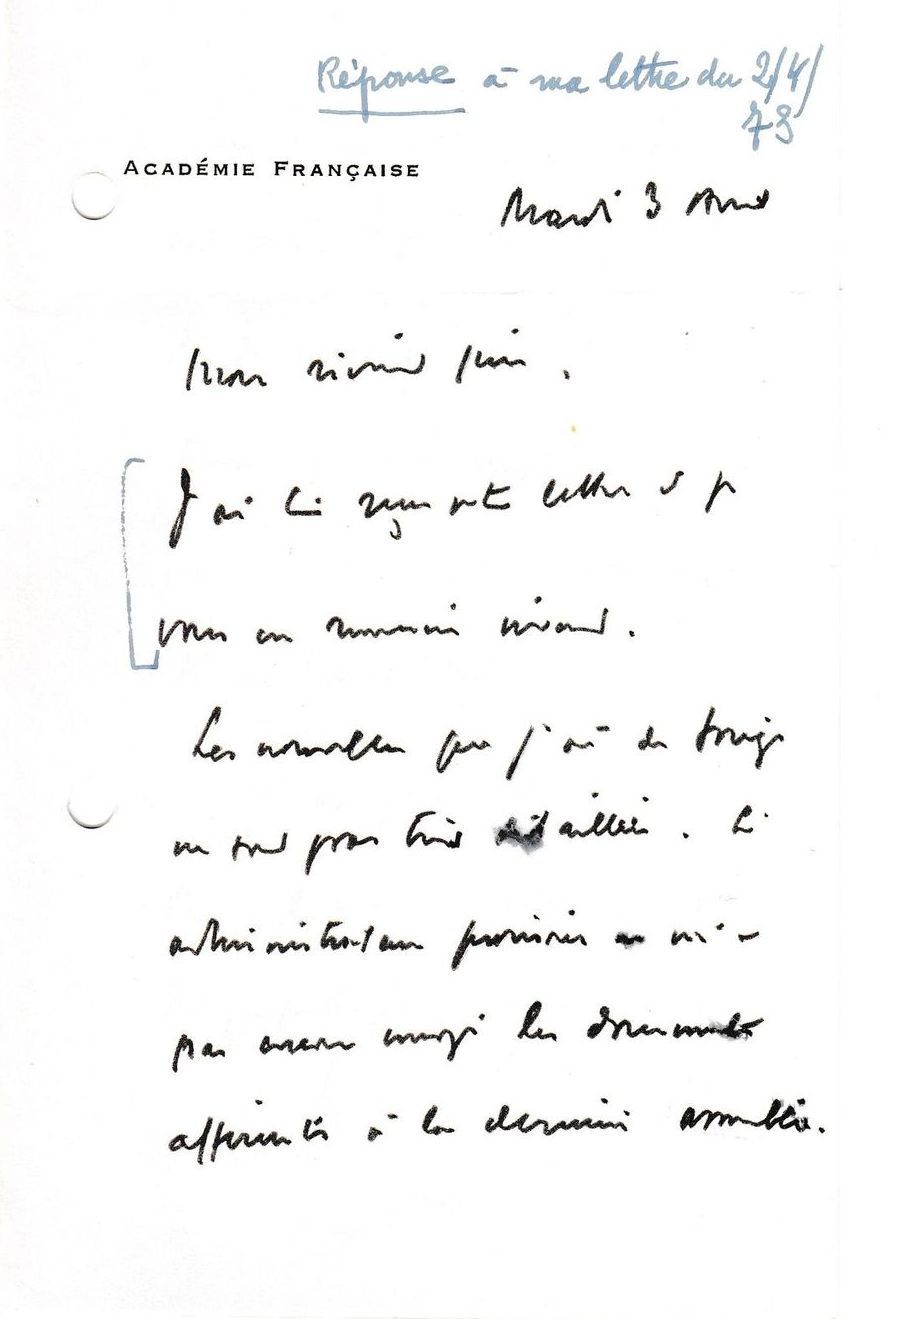 Réponse à ma lettre du 2/4/
73
ACADÉMIE FRANÇAISE
Mardi 3 Avril
Mon révérend père,
J'ai bien reçu votre lettre et je
vous en remercie vivement.
Les nouvelles que j'ai de
ne sont pas très détaillées. L'
administrateur provisoire ne m'a
pas encore envoyé les documents
afférents à la dernière assemblée.